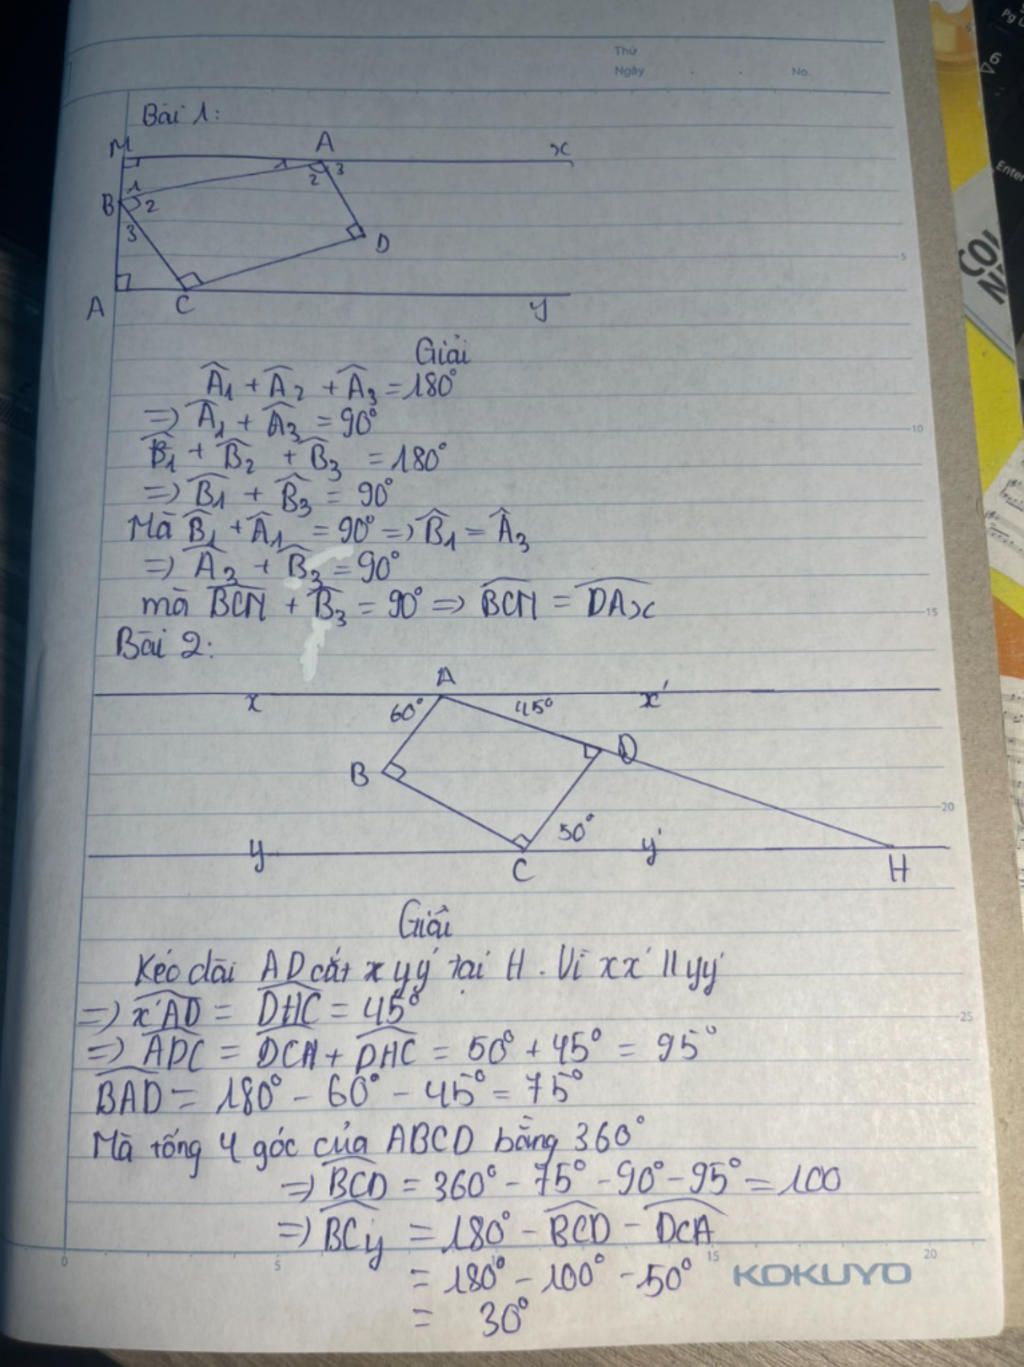 Thứ
Ngày . . No.
Bài 1:
M A x
1 2 3
B 1 2 3
D
A C y
Giải
Â1 + Â2 + Â3 = 180°
=> Â1 + Â3 = 90°
B̂1 + B̂2 + B̂3 = 180°
=> B̂1 + B̂3 = 90°
Mà B̂1 + Â1 = 90° => B̂1 = Â3
=> Â3 + B̂3 = 90°
mà BCM + B̂3 = 90° => BCM = DAx
Bài 2:
A
x 60° 45° x'
B D
50°
y C y' H
Giải
Kéo dài AD cắt x yy' tại H. Vì xx' // yy'
=> x'AD = DHC = 45°
=> ADC = DCH + DHC = 50° + 45° = 95°
BAD = 180° - 60° - 45° = 75°
Mà tổng 4 góc của ABCD bằng 360°
=> BCD = 360° - 75° - 90° - 95° = 100
=> BCy = 180° - BCD - DCA
= 180° - 100° - 50°
= 30°
5
10
15
20
25
0 5 15 20
KOKUYO
Enter